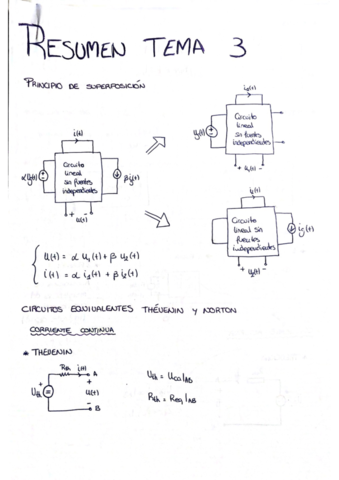 RESUMEN TEMA 3
PRINCIPIO DE SUPERPOSICIÓN
i(t)
Circuito
lineal
sin fuentes
independientes
αUg(t)
βig(t)
+ -
u(t)
i1(t)
Circuito
lineal
sin fuentes
independientes
Ug(t)
+ -
u1(t)
i2(t)
Circuito
lineal sin
fuentes
independientes
ig(t)
+ -
u2(t)
u(t) = α u1(t) + β u2(t)
i(t) = α i1(t) + β i2(t)
CIRCUITOS EQUIVALENTES THÉVENIN Y NORTON
CORRIENTE CONTINUA
* THEVENIN
Rth i(t) A
Uth
+
u(t)
-
B
Uth = Uca|AB
Rth = Req|AB